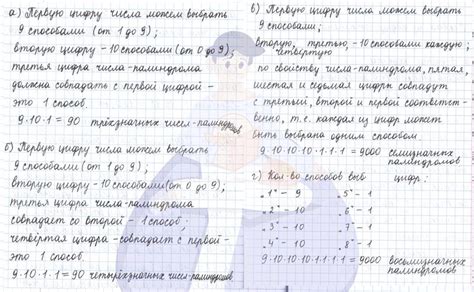 а) Первую цифру числа можем выбрать
9 способами (от 1 до 9);
вторую цифру - 10 способами (от 0 до 9);
третья цифра числа-палиндрома
должна совпадать с первой цифрой -
это 1 способ.
9·10·1 = 90 трёхзначных чисел-палиндромов
б) Первую цифру числа можем выбрать
9 способами (от 1 до 9);
вторую цифру - 10 способами (от 0 до 9);
третья цифра числа-палиндрома
совпадает со второй - 1 способ;
четвёртая цифра - совпадает с первой -
это 1 способ.
9·10·1·1 = 90 четырёхзначных чисел-палиндромов
в) Первую цифру числа можем выбрать
9 способами;
вторую, третью, - 10 способами каждую;
четвёртую
по свойству числа-палиндрома, пятая,
шестая и седьмая цифры совпадут
с третьей, второй и первой соответст-
венно, т.е. каждая из цифр может
быть выбрана одним способом
9·10·10·10·1·1·1 = 9000 семизначных
палиндромов
г) Кол-во способов выб цифр:
"1" - 9 "5" - 1
"2" - 10 "6" - 1
"3" - 10 "7" - 1
"4" - 10 "8" - 1
9·10·10·10·1·1·1·1 = 9000 восьмизначных
палиндромов